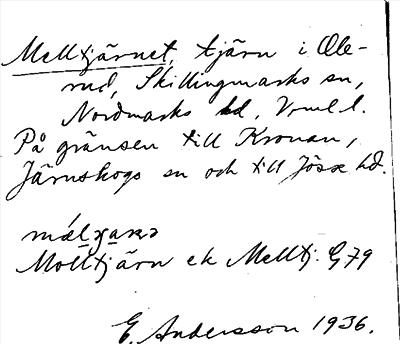 Melltjärnet, tjärn i Ole-
rud, Skillingmarks sn,
Nordmarks hd, Vrml l.
På gränsen till Kronan,
Järnskogs sn och till Jösse hd.
Molltjärn ek Melltj. G79
E. Andersson 1936.